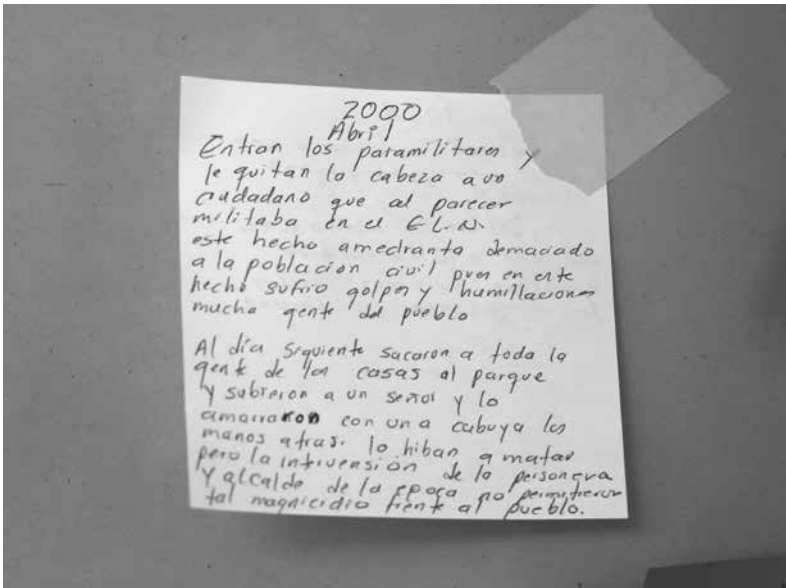 2000
Abril
Entran los paramilitares y
le quitan la cabeza a un
ciudadano que al parecer
militaba en el E.L.N.
este hecho amedranta demaciado
a la población civil pues en este
hecho sufrio golpes y humillaciones
mucha gente del pueblo
Al día siguiente sacaron a toda la
gente de las casas al parque
y subieron a un señor y lo
amarraron con una cabuya las
manos atras. lo hiban a matar
pero la intervensión de la personera
y alcalde de la epoca no permitieron
tal magnicidio frente al pueblo.